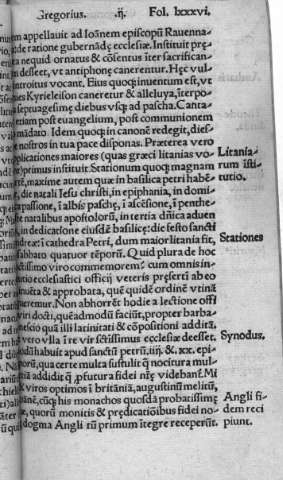 Gregorius. .ij. Fol. lxxxvi.
appellauit ad Ioānem episcopū Rauenna
de ratione gubernādę ecclesiæ. Instituit prę
nequid ornatus & cōsensus iter sacrifican
deesset, vt antiphonę canerentur. Hęc vul
introitus vocant. Eius quoq̃ inuentum est, vt
Kyrieleison caneretur & alleluya, īterpo
septuagesimę diebus vsq̃ ad pascha. Canta
etiam post euangelium, post communionem
mādato. Idem quoq̃ in canonē redegit, dies
nostros in tua pace disponas. Præterea vero
plicationes maiores (quas græci litanias vo- Litania-
primus instituit. Stationum quoq̃ magnam rum īsti-
maxime autem quæ in basilica petri habē tutio.
die natali Iesu christi, in epiphania, in domi-
passione, ī albis paschę, ī ascēsione, ī penthe
natalibus apostolorū, in tertia dñica aduen
in dedicatione eiusdē basilicę: die festo sancti
andreæ: ī cathedra Petri, dum maior litania fit, Stationes
sabbato quatuor tēporū. Quid plura de hoc
ctissimo viro commemorem? cum omnis in-
ecclesiastici officij veteris presertī ab eo
inuēta & approbata, quē quidē ordinē vtinā
queremur. Non abhorrēt hodie a lectione offi
viri docti, quēadmodū faciūt, propter barba-
nescio quā illi latinitati & cōpositioni additā,
vero vlla ī re vir sctissimus ecclesiæ deesset. Synodus.
habuit apud sanctū petrū, iiij. &. xx. epi-
porū, qua certe multa sustulit q̃ nocitura mul
additq̃ q̃ pfutura fidei nrę videbanť. Mi
viros optimos ī britāniā, augustinū melitū,
cūq̃ his monachos quosdā probatissimę Angli fi-
quorū monitis & prędicatiōibus fidei no- dem reci
dogma Angli tū primum ītegre receperūt. piunt.